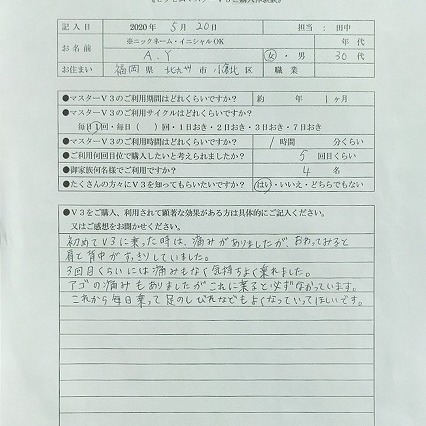 記入日 2020年 5月 20日 担当：田中
お名前 ※ニックネーム・イニシャルOK 年代
A.Y 女・男 30代
お住まい 福岡県 北九州市 小倉北区 職業
●マスターV3のご利用期間はどれくらいですか？ 約 年 1ヶ月
●マスターV3のご利用サイクルはどれくらいですか？
毎日1回・毎日（ ）回・1日おき・2日おき・3日おき・7日おき
●マスターV3のご利用時間はどれくらいですか？ 1時間 分くらい
●ご利用何回目位で購入したいと考えられましたか？ 5回目くらい
●御家族何名様でご利用ですか？ 4名
●たくさんの方々にV3を知ってもらいたいですか？ はい・いいえ・どちらでもない
●V3をご購入、利用されて顕著な効果がある方は具体的にご記入ください。
又はご感想をお聞かせください。
初めてV3に乗った時は、痛みがありましたが、おわってみると
肩と背中がすっきりしていました。
3回目くらいには痛みもなく気持ちよく乗れました。
アゴの痛みもありましたがこれに乗ると必ずなかっています。
これから毎日乗って足のしびれなどもよくなっていってほしいです。